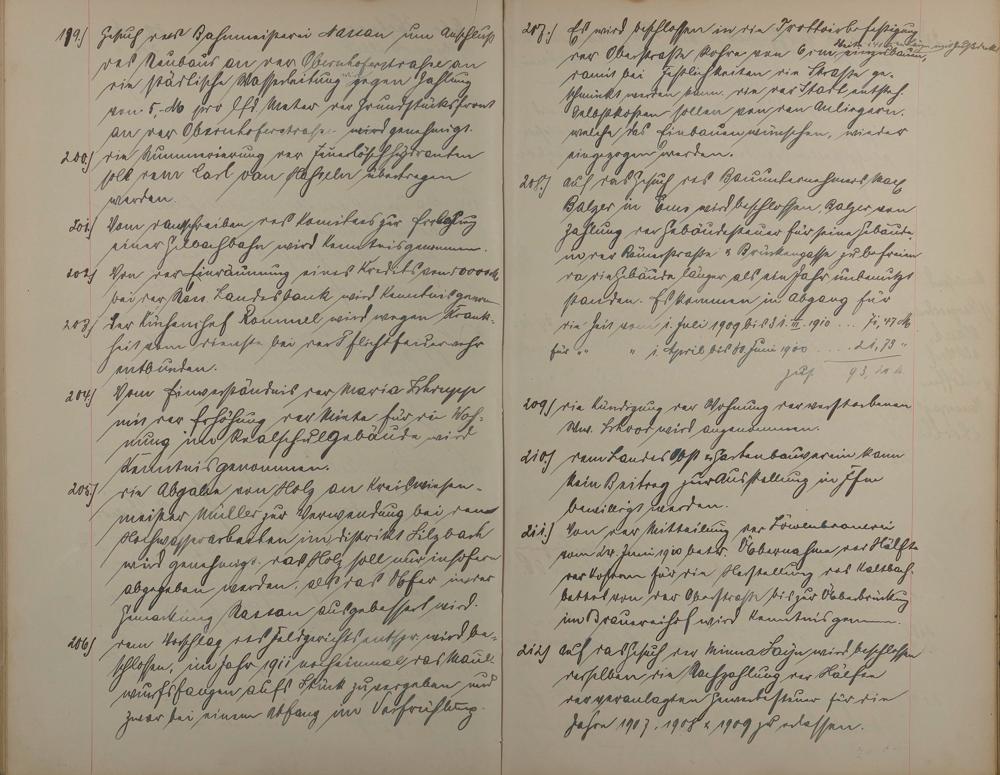 199.) Gesuch der Bahnmeisterei Nassau um Anschluß
des Neubaus an der Obernhoferstrasse an
die städtische Wasserleitung gegen Zahlung
von 5,- M pro lfd Meter der Grundstücksfront
an der Obernhoferstrasse wird genehmigt.
200.) die Nummerierung der Feuerlöschhydranten
soll dem Carl von übertragen
werden.
201.) Vom des Komitees zur
einer wird Kenntnis genommen.
202.) Von der Einräumung eines Kredits von
bei der Nass. Landesbank wird Kenntnis genom
203.) der Rommel wird wegen Krank-
heit vom dienste bei der Pflichtfeuerwehr
entbunden.
204.) Vom Einverständnis der Maria
mit der Erhöhung der Miete für die Woh-
nung im Realschulgebäude wird
Kenntnis genommen.
205.) die Abgabe von Holz an Kreiswiesen-
meister Müller zur Verwendung bei den
Hochwasserarbeiten im distrikt
wird genehmigt. das Holz soll nur insofern
abgegeben werden, als das Ufer in der
Gemarkung Nassau ausgebessert wird.
206.) dem Vorschlag des Feldgerichts entspr. wird be-
schlossen, im Jahr 1911 das Maul-
wurfsfangen aufs Stück zu vergeben und
zwar bei einem im
207.) Es wird beschlossen in die Trottoirbefestigung
der Oberstrasse Rohre von 6 cm einzubauen,
damit bei Festlichkeiten die Straße ge-
schmückt werden kann. die der Stadt entsteh.
Selbstkosten sollen von den Anliegern,
welche das Einbauen wünschen, wieder
eingezogen werden.
208.) Auf das Gesuch des Bauunternehmers
Balzer in Ems wird beschlossen, Balzer von
Zahlung der Gebäudesteuer für seine Gebäude
in der u Brückengasse zu befreien
da die Gebäude länger als ein Jahr unbenutzt
standen. Es kommen in Abgang für
die Zeit vom 1. Juli 1909 bis 31. III. 1910 ... 71,47 M.
für " " " 1. April bis 30. Juni 1910 .... 21,73 "
zus 93,20 M.
209.) die Kündigung der Wohnung der verstorbenen
Ww. wird angenommen.
210.) dem Landes Obst u Gartenbauverein kann
kein Beitrag zur Ausstellung in
bewilligt werden.
211.) Von der Mitteilung der Löwenbrauerei
vom 24. Juni 1910 betr. Übernahme der Hälfte
der Kosten für die Herstellung des Kaltbach-
bettes von der Oberstrasse bis zur Überbrückung
im Brauereihof wird Kenntnis genom
212.) Auf das Gesuch der Minna wird beschlossen
derselben die Nachzahlung der Hälfte
der veranlagten Gewerbesteuer für die
Jahre 1907. 1908 & 1909 zu erlassen.